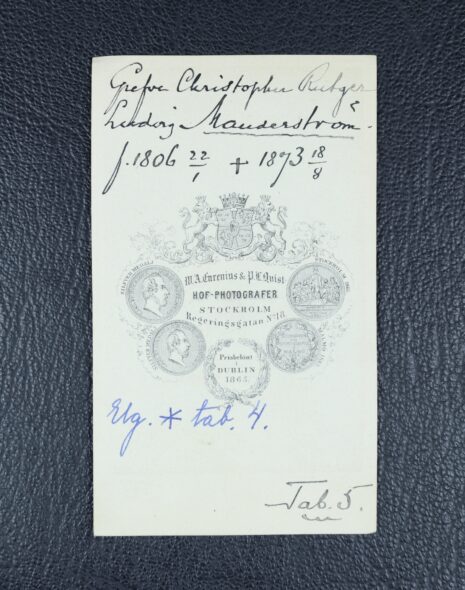 Grefve Christopher Rutger
Ludvig Manderström.
f. 1806 22/1 + 1873 18/8
W.A. Eurenius & P.L. Quist
HOF-PHOTOGRAFER
STOCKHOLM
Regeringsgatan No 18
Prisbelönt
DUBLIN
1865
Elg. * tab. 4.
Tab. 5.